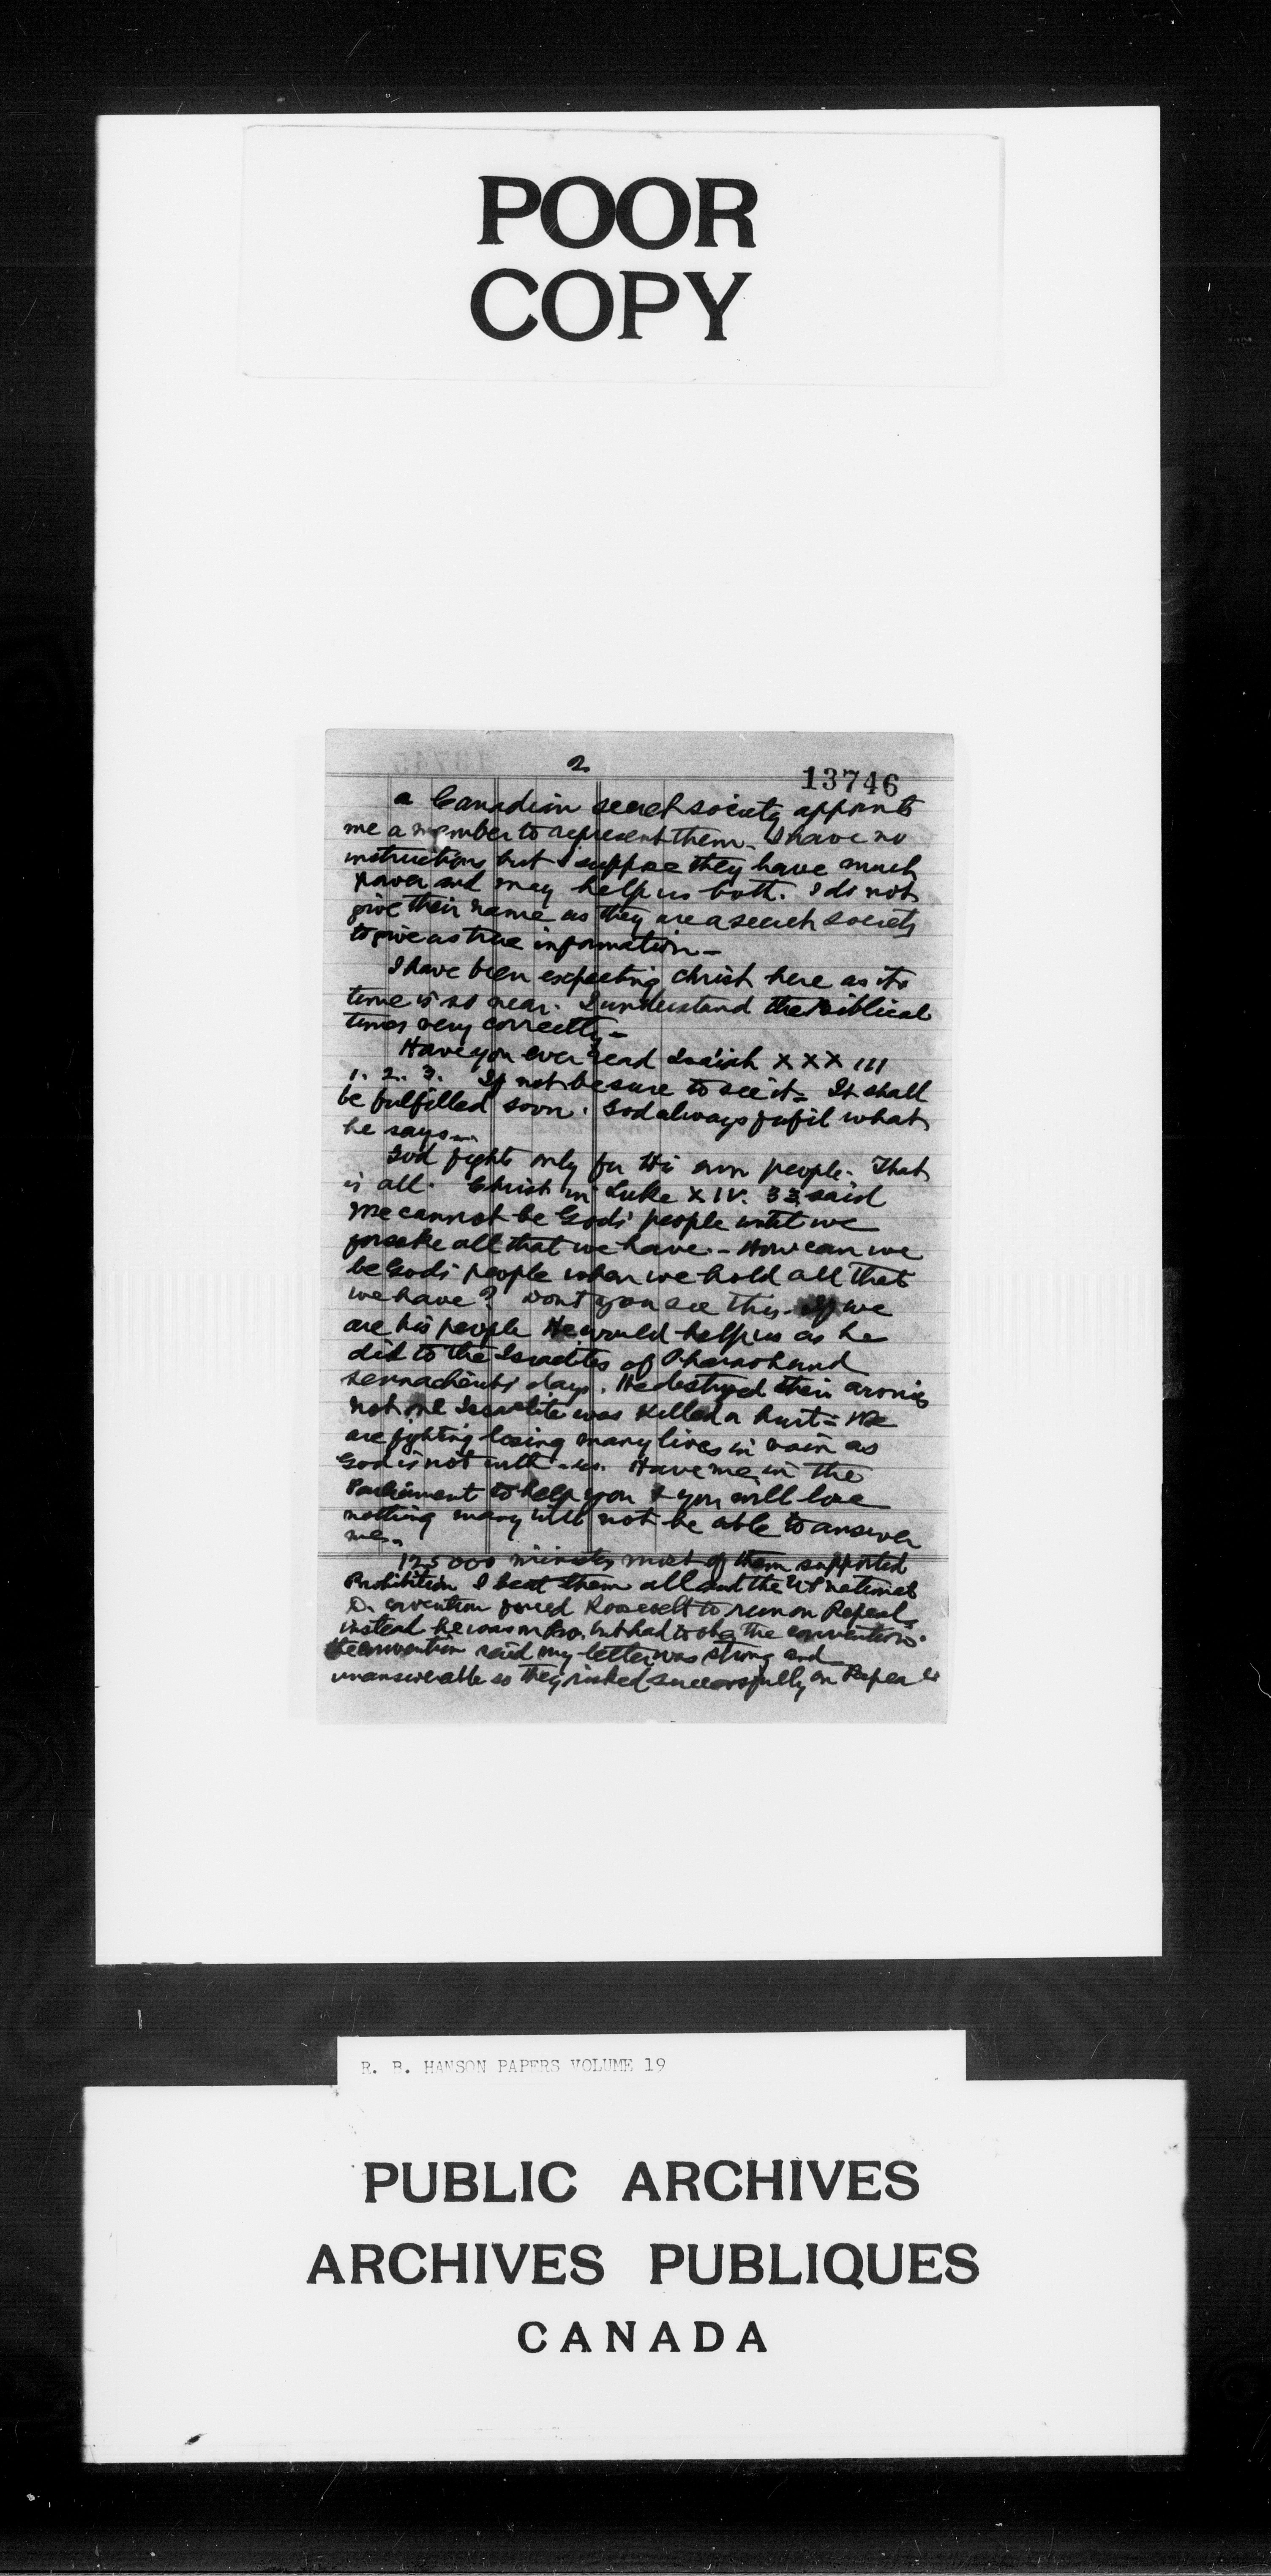 POOR
COPY
2
13746
a Canadian secret society appoints
me a member to represent them. I have no
instructions but I suppose they have much
power and may help us both. I do not
give their name as they are a secret society
to give as true information -
I have been expecting Christ here as its
time is so near. I understand the Biblical
times very correctly -
Have you ever read Isaiah XXXIII
1. 2. 3. If not be sure to see it = It shall
be fulfilled soon. God always fufil what
he says -
God fights only for His own people. That
is all. Christ in Luke XIV. 33 said
we cannot be Gods people until we
forsake all that we have. - How can we
be Gods people when we hold all that
we have? Dont you see this - If we
are his people He would help us as he
did to the Israelites of Pharaoh and
days. He destroyed their armies
not one Israelite was killed or hurt = We
are fighting losing many lives in vain as
God is not with us. Have me in the
Parliament to help you & you will lose
nothing many will not be able to answer
me.
125 000 ministers most of them supported
Prohibition I beat them all and the US national
D. convention forced Roosevelt to run on Repeal
instead he was on Pro. but had to obey the convention.
The convention said my letter was strong and
unanswerable so they risked successfully on Repeal
R. B. HANSON PAPERS VOLUME 19
PUBLIC ARCHIVES
ARCHIVES PUBLIQUES
CANADA